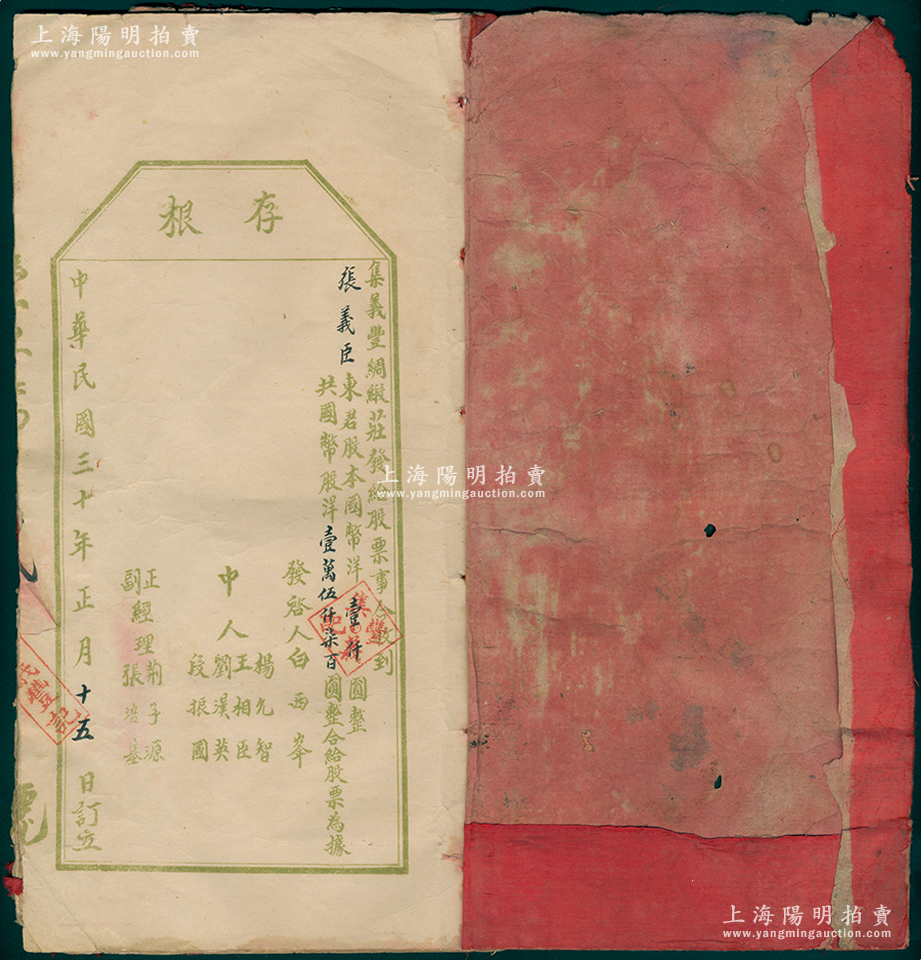 上海陽明拍賣
www.yangmingauction.com
存根
集義豐綢緞莊發給股票事今收到
張義臣東君股本國幣洋壹仟圓整
共國幣股洋壹萬伍仟柒百圓整合給股票為據
發啓人白西峯
楊允智
中人王相臣
劉漢英
段振國
正經理荊子源
副張培基
中華民國三十年正月十五日訂立
上海陽明拍賣
www.yangmingauction.com
上海陽明拍賣
www.yangmingauction.com